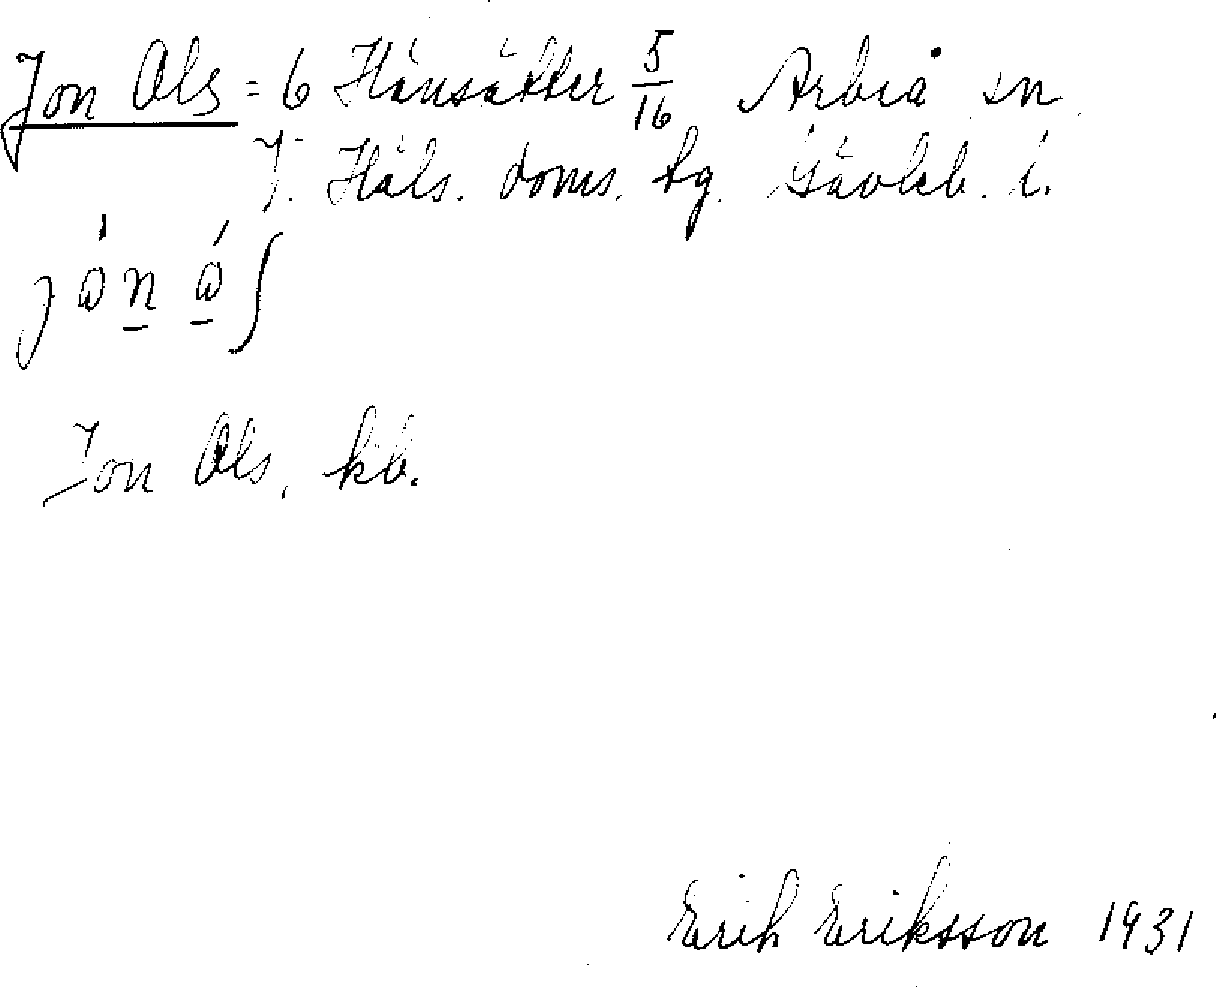 Jon Ols = 6 Hänsätter 5/16 Arbrå sn.
V. Häls. doms. tg. Gävleb. l.
Jon Ols, kb.
Erik Eriksson 1931